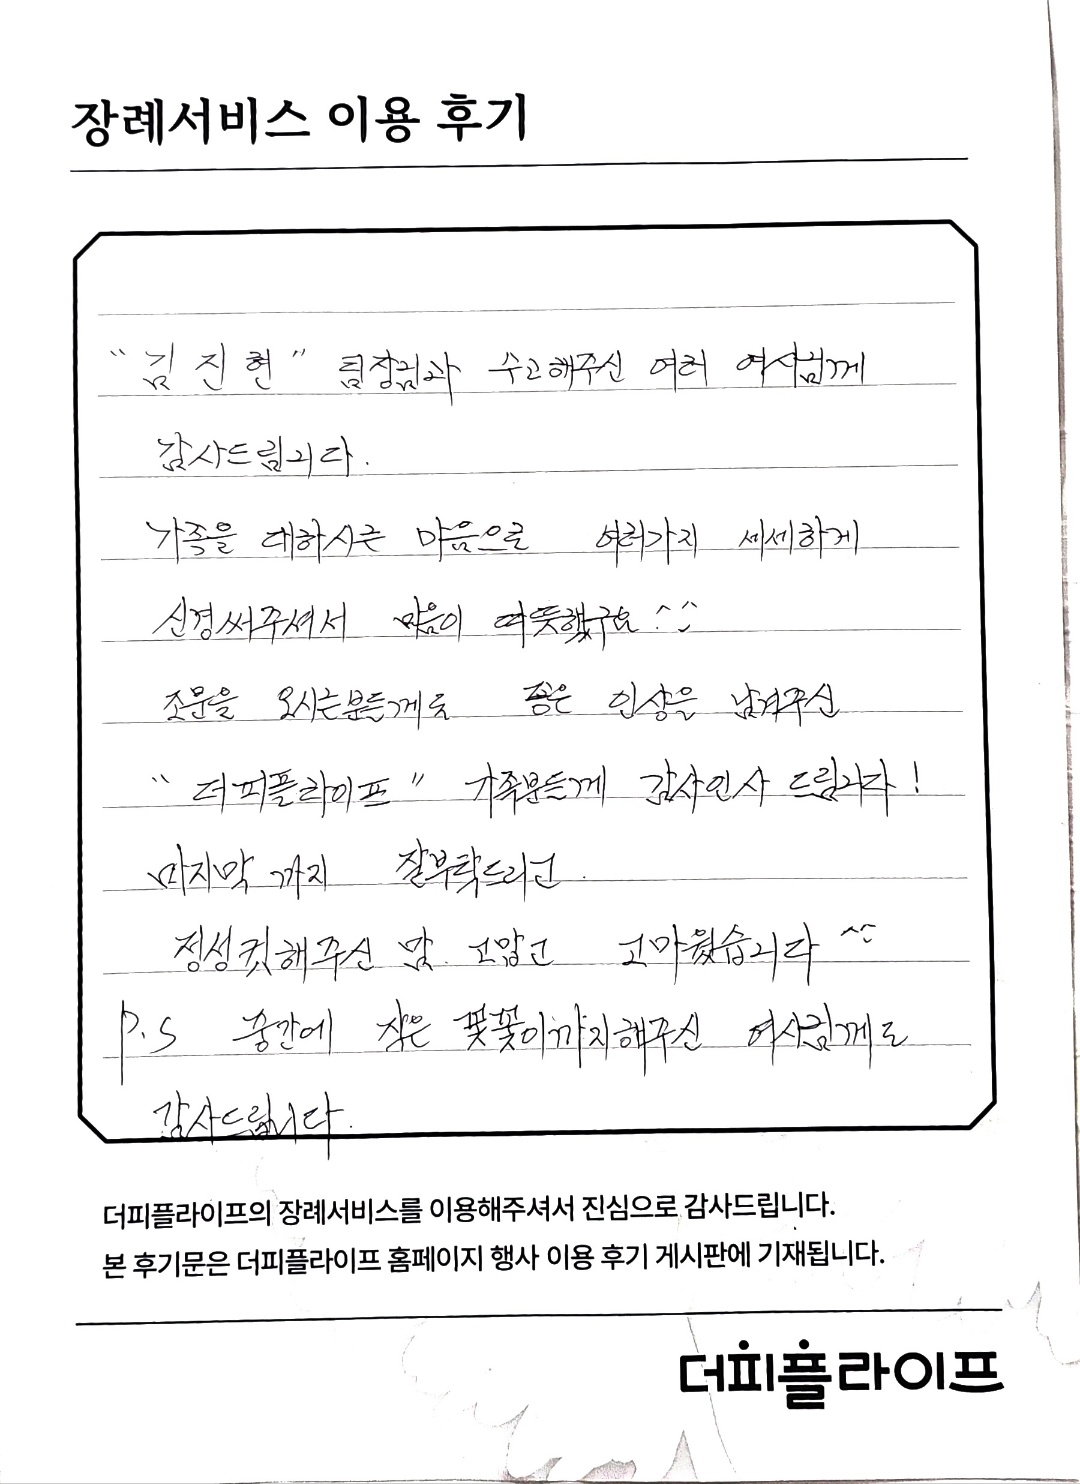 장례서비스 이용 후기
"김진현" 팀장님과 수고해주신 여러 여사님께
감사드립니다.
가족을 대하시는 마음으로 여러가지 세세하게
신경써주셔서 마음이 따뜻했구요 ^^
조문을 오시는분들께도 좋은 인상을 남겨주신
"더피플라이프" 가족분들께 감사인사 드립니다!
마지막 까지 잘부탁드리고.
정성컷해주신 맘. 고맙고 고마웠습니다 ^^
P.S 중간에 작은 꽃꽂이까지해주신 여사님께도
감사드립니다.
더피플라이프의 장례서비스를 이용해주셔서 진심으로 감사드립니다.
본 후기문은 더피플라이프 홈페이지 행사 이용 후기 게시판에 기재됩니다.
더피플라이프